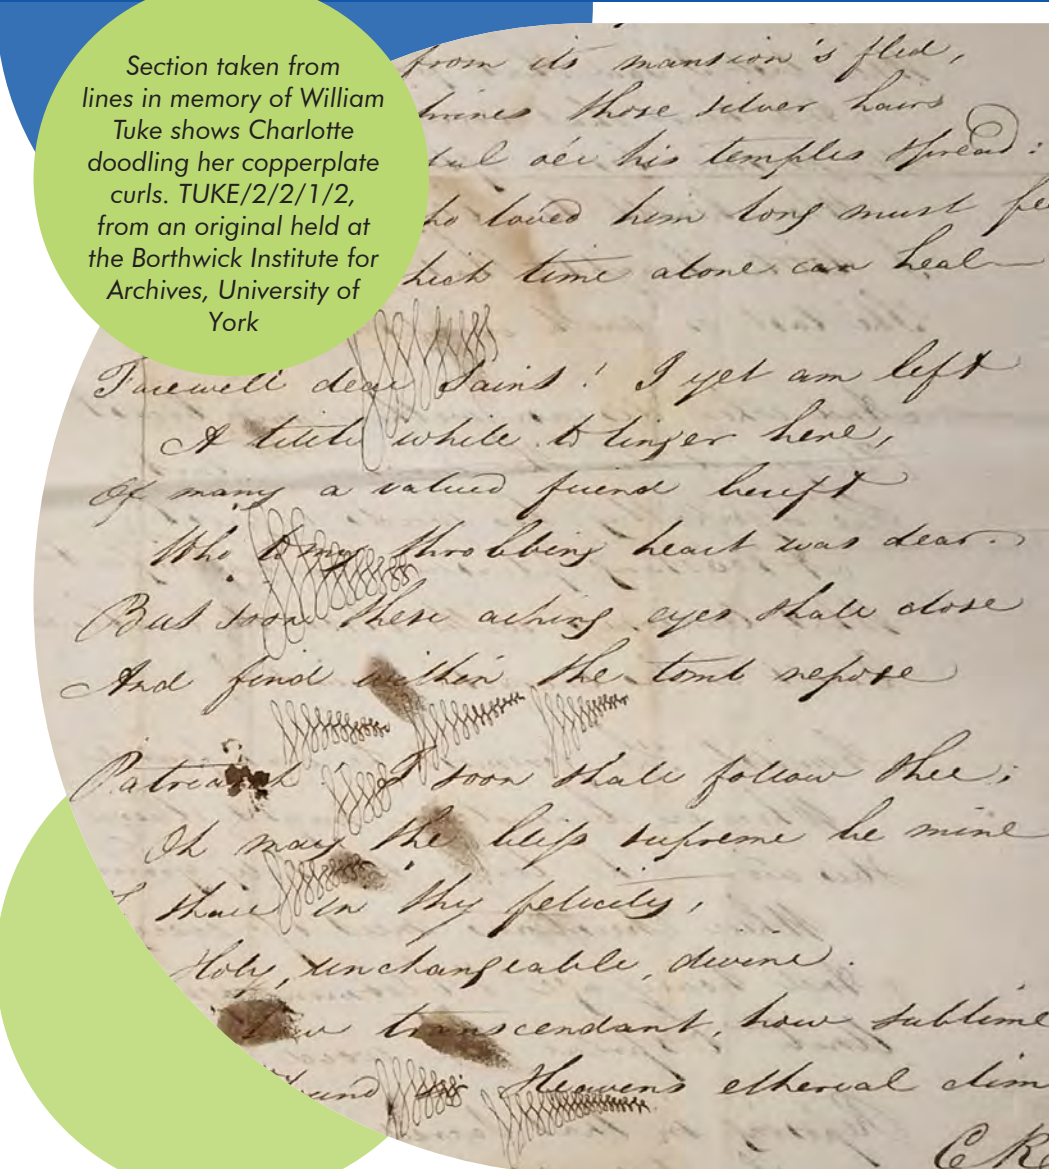 Section taken from
lines in memory of William
Tuke shows Charlotte
doodling her copperplate
curls. TUKE/2/2/1/2,
from an original held at
the Borthwick Institute for
Archives, University of
York
from its mansion's fled,
those silver hairs
o'er his temples spread:
who loved him long must
time alone can heal
Farewell dear Saint! I yet am left
A little while to linger here,
Of many a valued friend bereft
Who to my throbbing heart was dear.
But soon these aching eyes shall close
And find within the tomb repose
Patriarch I soon shall follow thee;
Oh may the bliss supreme be mine
share in thy felicity,
Holy, unchangeable, divine.
transcendant, how sublime
Heavens ethereal clim